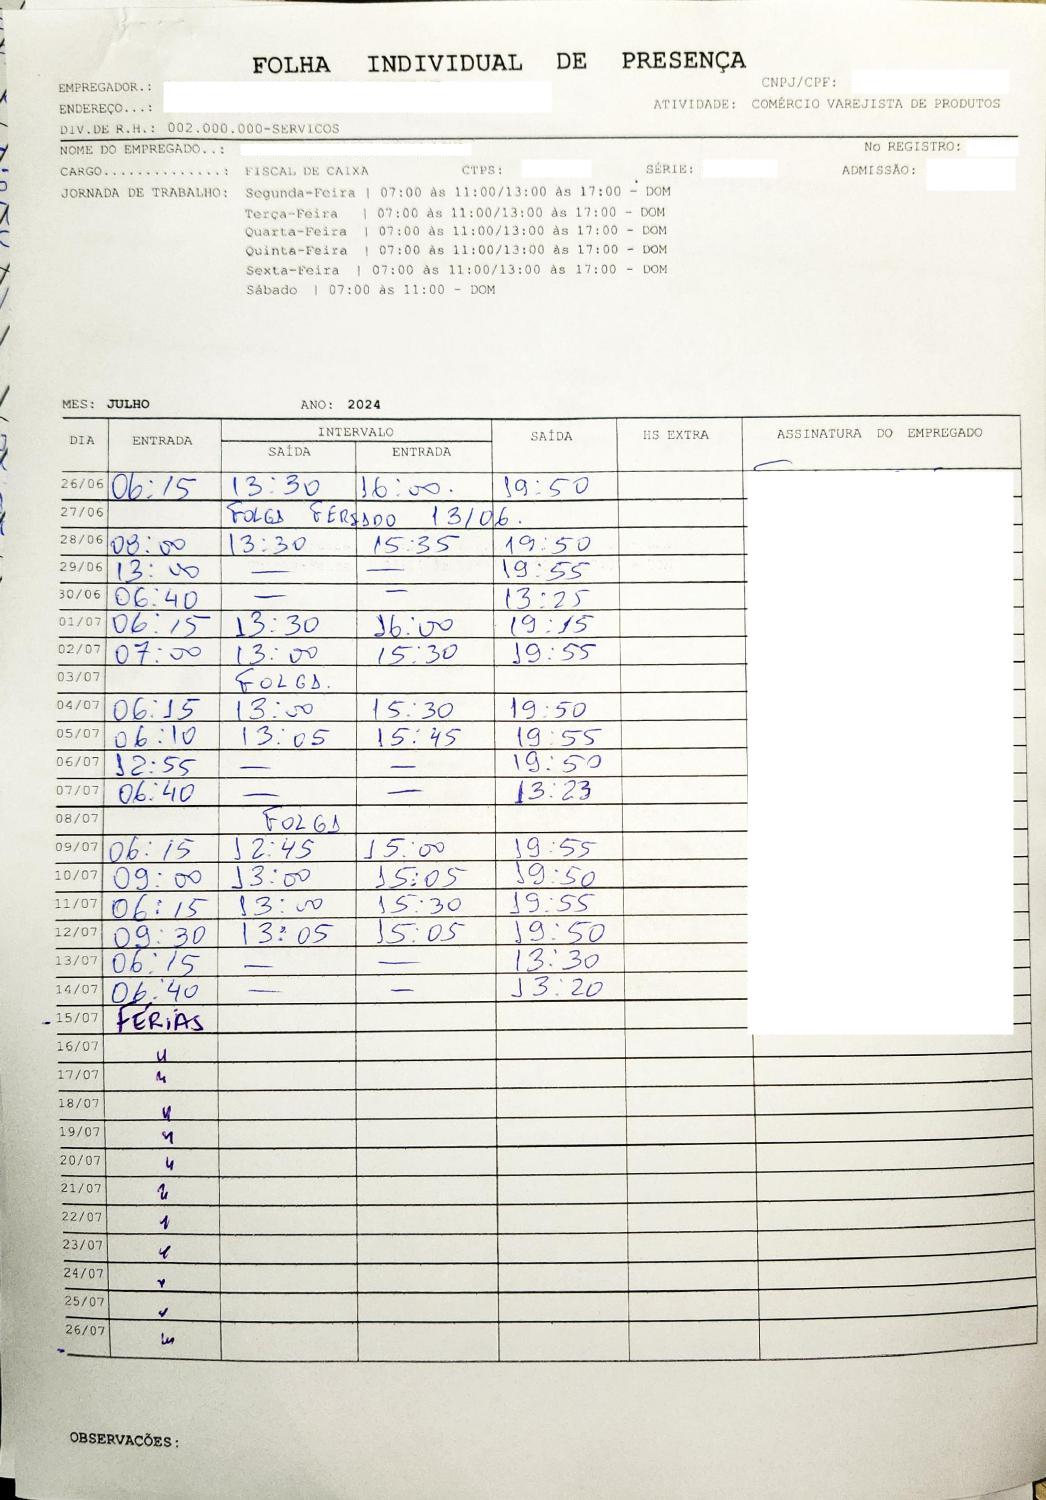 FOLHA INDIVIDUAL DE PRESENÇA
EMPREGADOR.:
CNPJ/CPF:
ENDEREÇO...:
ATIVIDADE: COMÉRCIO VAREJISTA DE PRODUTOS
DIV.DE R.H.: 002.000.000-SERVICOS
NOME DO EMPREGADO..:
No REGISTRO:
CARGO..............: FISCAL DE CAIXA CTPS: SÉRIE: ADMISSÃO:
JORNADA DE TRABALHO: Segunda-Feira | 07:00 às 11:00/13:00 às 17:00 - DOM
Terça-Feira | 07:00 às 11:00/13:00 às 17:00 - DOM
Quarta-Feira | 07:00 às 11:00/13:00 às 17:00 - DOM
Quinta-Feira | 07:00 às 11:00/13:00 às 17:00 - DOM
Sexta-Feira | 07:00 às 11:00/13:00 às 17:00 - DOM
Sábado | 07:00 às 11:00 - DOM
MES: JULHO ANO: 2024
DIA ENTRADA INTERVALO SAÍDA HS EXTRA ASSINATURA DO EMPREGADO
SAÍDA ENTRADA
26/06 06:15 13:30 16:00. 19:50
27/06 FOLGA FERIADO 13/06.
28/06 08:00 13:30 15:35 19:50
29/06 13:00 — — 19:55
30/06 06:40 — — 13:25
01/07 06:15 13:30 16:00 19:15
02/07 07:00 13:00 15:30 19:55
03/07 FOLGA.
04/07 06:15 13:00 15:30 19:50
05/07 06:10 13:05 15:45 19:55
06/07 12:55 — — 19:50
07/07 06:40 — — 13:23
08/07 FOLGA
09/07 06:15 12:45 15:00 19:55
10/07 09:00 13:00 15:05 19:50
11/07 06:15 13:00 15:30 19:55
12/07 09:30 13:05 15:05 19:50
13/07 06:15 — — 13:30
14/07 06:40 — — 13:20
15/07 FÉRIAS
16/07
17/07
18/07
19/07
20/07
21/07
22/07
23/07
24/07
25/07
26/07
OBSERVAÇÕES: